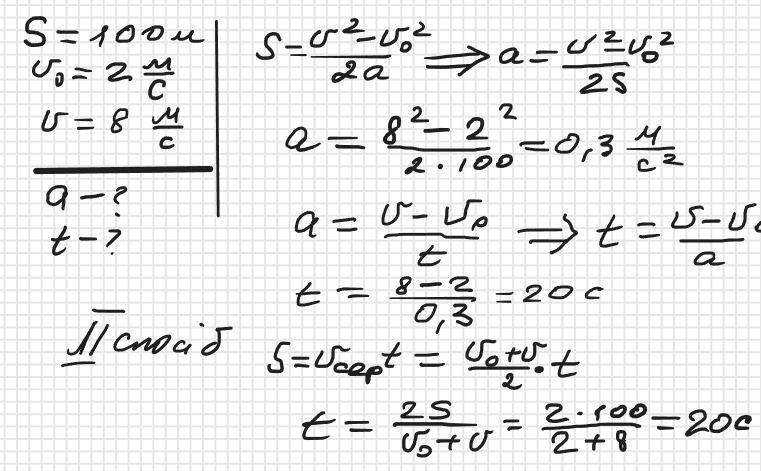 S = 100 м
υ₀ = 2 м/с
υ = 8 м/с
a - ?
t - ?
S = (υ² - υ₀²)/2a ⟹ a = (υ² - υ₀²)/2S
a = (8² - 2²)/(2 · 100) = 0,3 м/с²
a = (υ - υ₀)/t ⟹ t = (υ - υ₀)/a
t = (8 - 2)/0,3 = 20 с
II спосіб
S = υсер t = (υ₀ + υ)/2 · t
t = 2S/(υ₀ + υ) = (2 · 100)/(2 + 8) = 20с